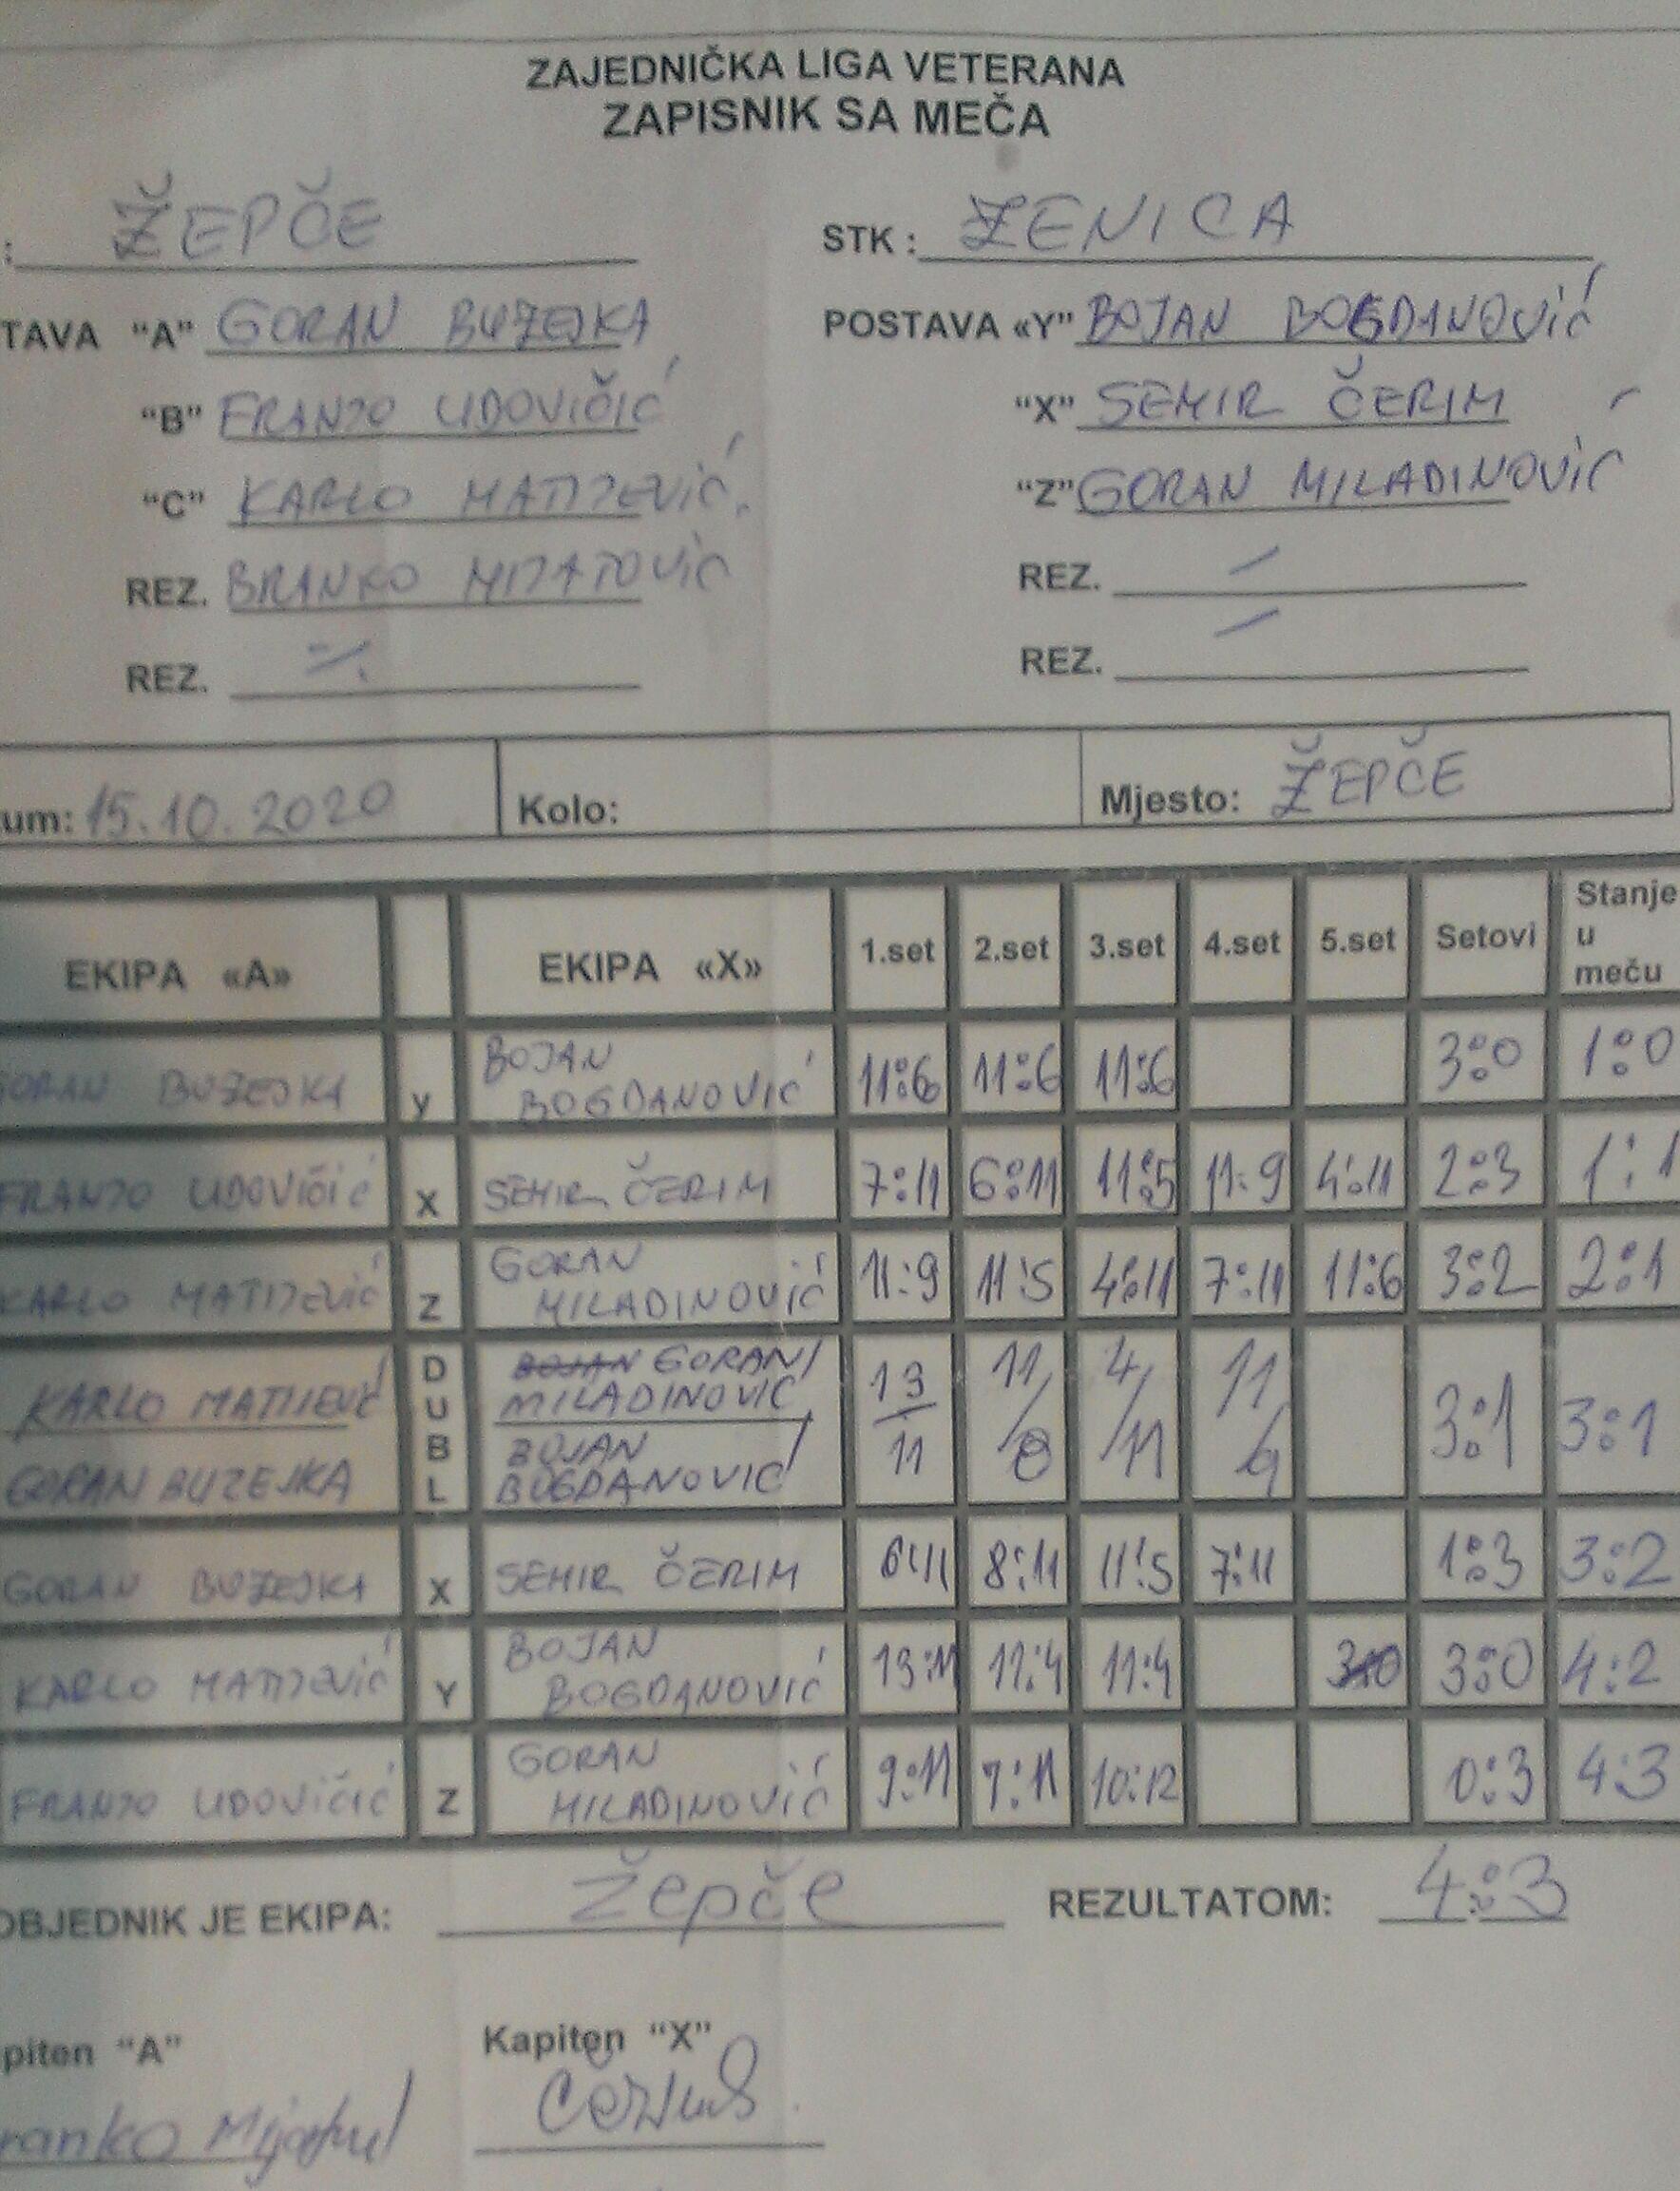 ZAJEDNIČKA LIGA VETERANA
ZAPISNIK SA MEČA
: ŽEPČE STK : ZENICA
TAVA "A" GORAN BUZEJKA POSTAVA «Y" BOJAN BOGDANOVIĆ
"B" FRANJO UDOVIČIĆ "X" SEMIR ČERIM
"C" KARLO MATIJEVIĆ. "Z" GORAN MILADINOVIĆ
REZ. BRANKO MIJATOVIĆ REZ. /
REZ. -/. REZ. /
um: 15.10.2020 Kolo: Mjesto: ŽEPČE
EKIPA «A» EKIPA «X» 1.set 2.set 3.set 4.set 5.set Setovi Stanje u meču
GORAN BUZEJKA y BOJAN BOGDANOVIĆ 11:6 11:6 11:6 3:0 1:0
FRANJO UDOVIČIĆ X SEMIR ČERIM 7:11 6:11 11:5 11:9 4:11 2:3 1:1
KARLO MATIJEVIĆ Z GORAN MILADINOVIĆ 11:9 11:5 4:11 7:11 11:6 3:2 2:1
KARLO MATIJEVIĆ GORAN BUZEJKA DUBL BOJAN GORAN MILADINOVIĆ BOJAN BOGDANOVIĆ 13/11 11/8 4/11 11/9 3:1 3:1
GORAN BUZEJKA X SEMIR ČERIM 6:11 8:11 11:5 7:11 1:3 3:2
KARLO MATIJEVIĆ Y BOJAN BOGDANOVIĆ 13:11 11:4 11:4 3:0 3:0 4:2
FRANJO UDOVIČIĆ Z GORAN MILADINOVIĆ 9:11 7:11 10:12 0:3 4:3
OBJEDNIK JE EKIPA: Žepče REZULTATOM: 4:3
piten "A" Kapiten "X"
ranko